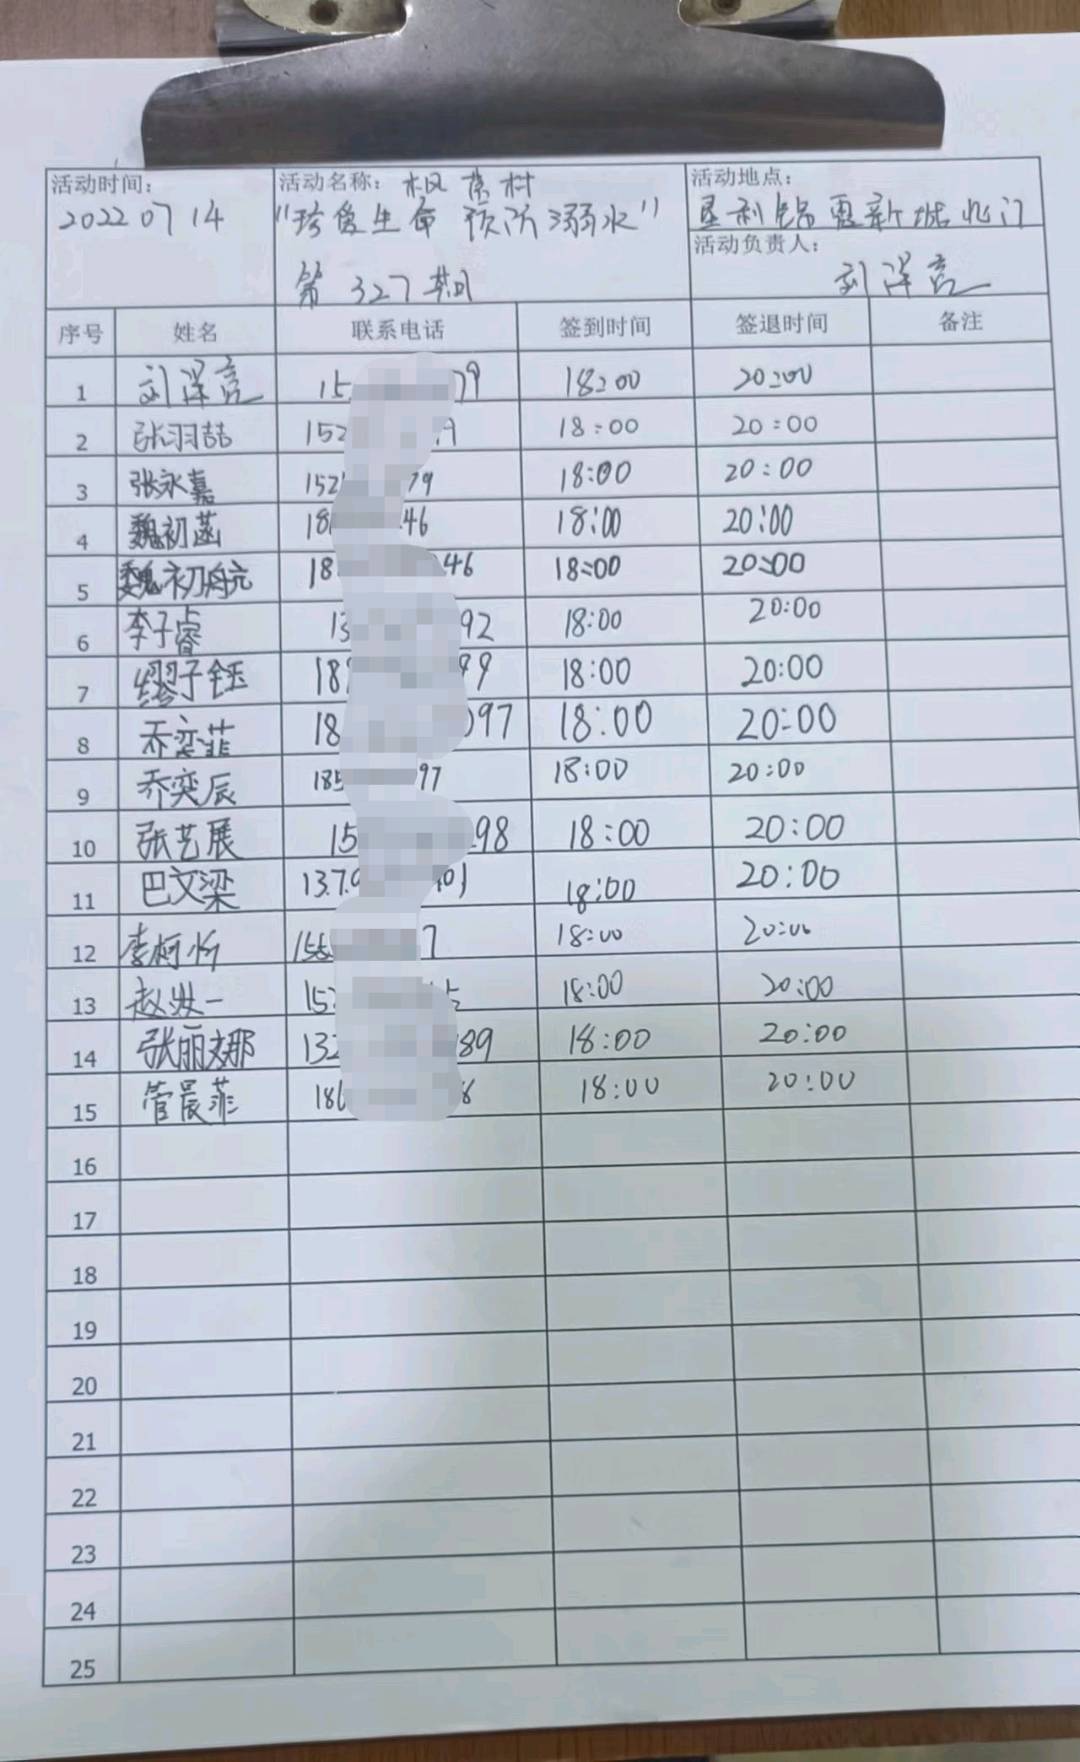 活动时间:
20220714
活动名称: 枫叶村
"珍爱生命 预防溺水"
第327期
活动地点:
垦利锦惠新城北门
活动负责人:
刘泽亮
序号 姓名 联系电话 签到时间 签退时间 备注
1 刘泽亮 15 79 18:00 20:00
2 张羽喆 152 18:00 20:00
3 张永嘉 152 79 18:00 20:00
4 魏初菡 18 46 18:00 20:00
5 魏初航 18 46 18:00 20:00
6 李子睿 13 92 18:00 20:00
7 缪子钰 18 99 18:00 20:00
8 乔奕菲 18 097 18:00 20:00
9 乔奕辰 185 97 18:00 20:00
10 张艺展 15 98 18:00 20:00
11 巴文梁 137 01 18:00 20:00
12 李柯忻 155 7 18:00 20:00
13 赵 一 15 18:00 20:00
14 张丽娜 132 89 18:00 20:00
15 管晨菲 18 8 18:00 20:00
16
17
18
19
20
21
22
23
24
25